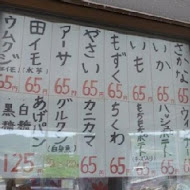 さかな
65円
いか
65円
いも
65円
もずく
65円
やさい
65円
アーサ
65円
田イモ
65円
ウムクジ
65円
ちくわ
65円
カニカマ
65円
グルクン
65円
あげパン
黒糖
白糖
125円